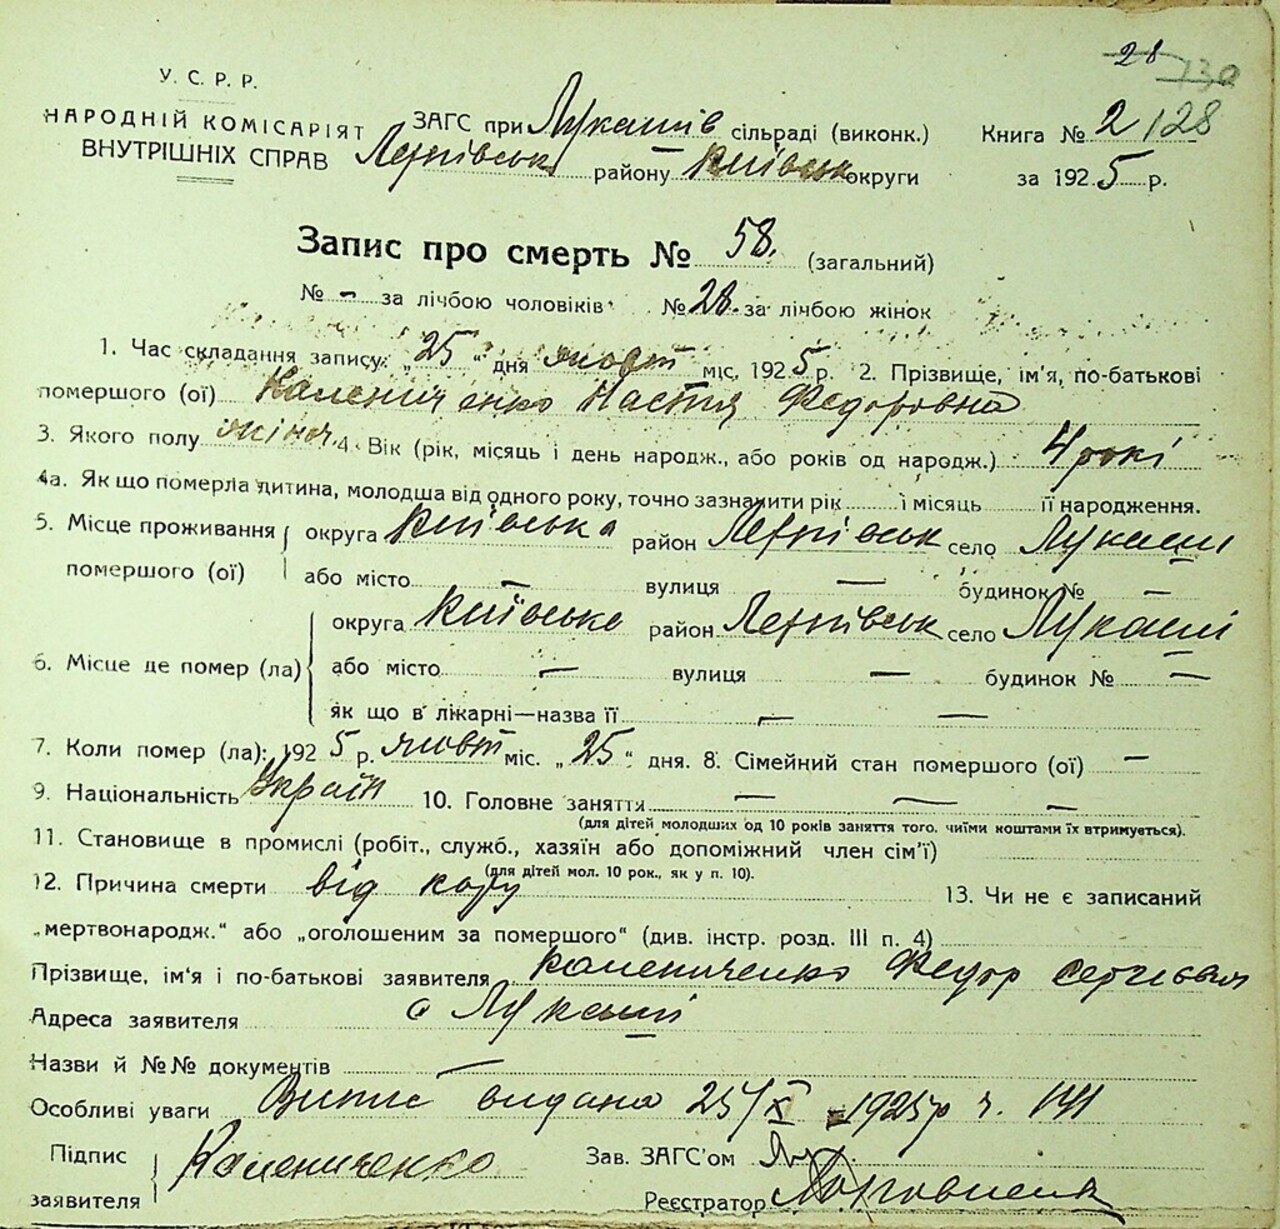 28 130
У. С. Р. Р.
НАРОДНІЙ КОМІСАРІЯТ
ВНУТРІШНІХ СПРАВ
ЗАГС при Лукашів сільраді (виконк.)
району Київськ округи
Книга № 2 / 128
за 1925 р.
Запис про смерть № 58. (загальний)
№ - за лічбою чоловіків № 28. за лічбою жінок
1. Час складання запису: „25“ дня жовт міс. 1925 р. 2. Прізвище, ім'я, по-батькові
помершого (ої) Каленіченко Настя Федоровна
3. Якого полу жіноч. 4. Вік (рік, місяць і день народж., або років од народж.) 4 рокі
4а. Як що померла дитина, молодша від одного року, точно зазначити рік і місяць її народження.
5. Місце проживання помершого (ої) округа Київська район село Лукаші
або місто — вулиця — будинок № —
6. Місце де помер (ла) округа Київське район село Лукаші
або місто — вулиця — будинок № —
як що в лікарні—назва її — —
7. Коли помер (ла): 1925 р. жовт міс. „25“ дня. 8. Сімейний стан помершого (ої) —
9. Національність Україн 10. Головне заняття — — —
(для дітей молодших од 10 років заняття того. чиїми коштами їх втримується).
11. Становище в промислі (робіт., служб., хазяїн або допоміжний член сім'ї)
(для дітей мол. 10 рок., як у п. 10).
12. Причина смерти від кору 13. Чи не є записаний
„мертвонародж.“ або „оголошеним за померш­ого“ (див. інстр. розд. III п. 4)
Прізвище, ім'я і по-батькові заявителя Калениченко Федор
Адреса заявителя с Лукаші
Назви й №№ документів —
Особливі уваги Випис видана 25/X 1925р ч. 141
Підпис заявителя Калениченко
Зав. ЗАГС'ом
Реєстратор